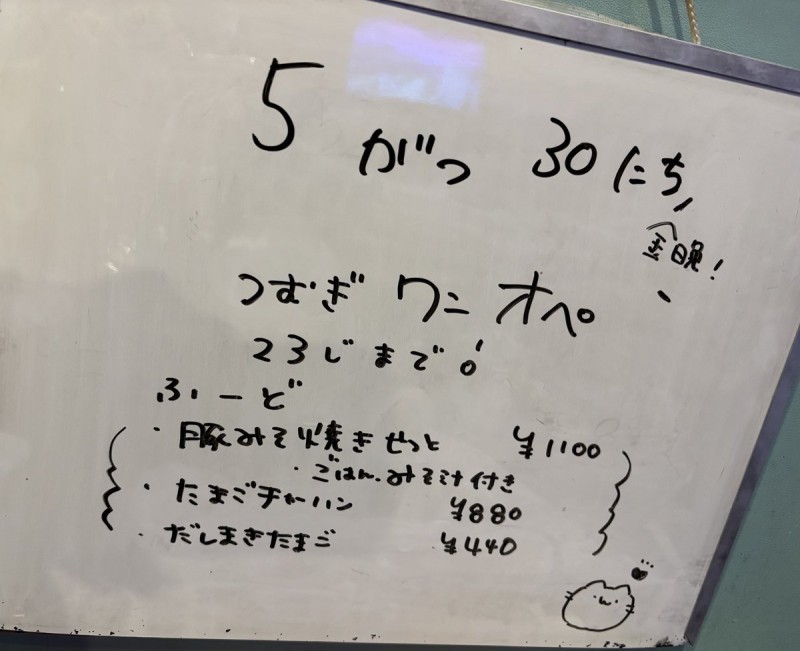 5 がつ 30 にち
金曜!
つむぎ ワンオペ
23じまで!
ふーど
・豚みそ焼きせっと ¥1100
・ごはん、みそ汁付き
・たまごチャーハン ¥880
・だしまきたまご ¥440